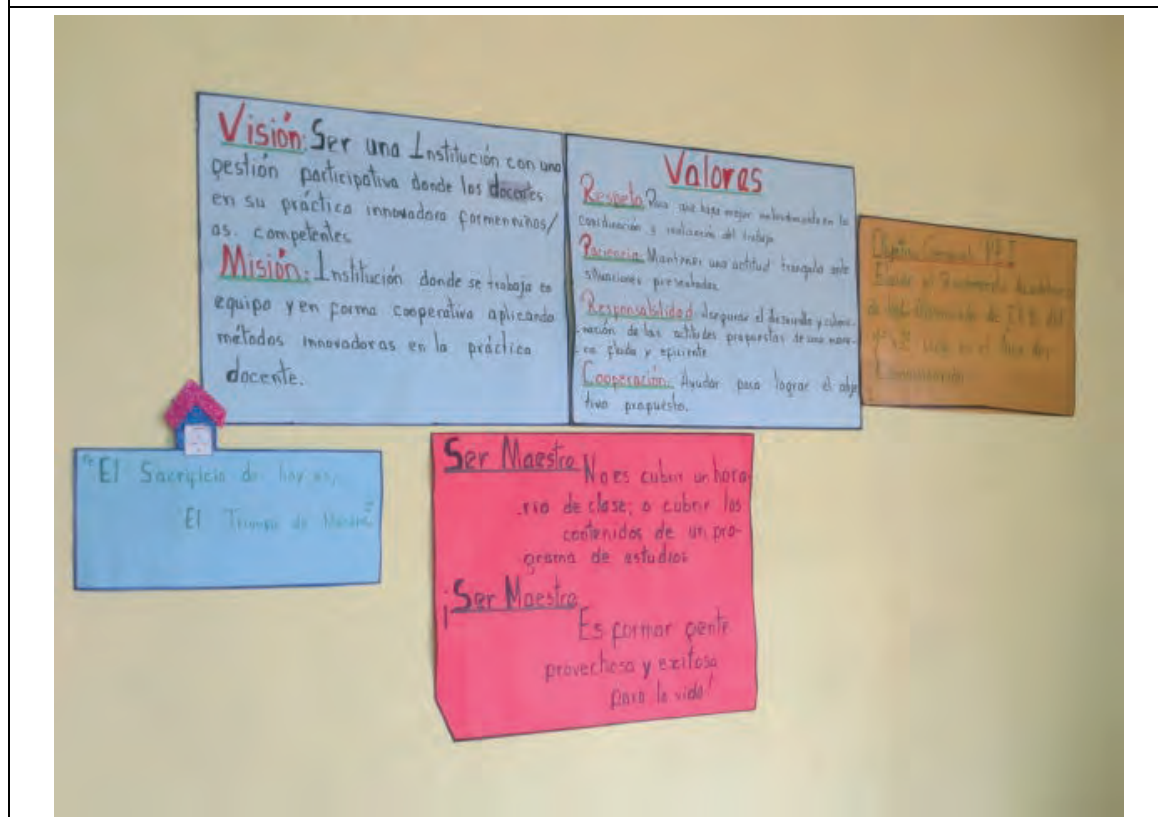 Visión: Ser una Institución con una
gestión participativa donde los docentes
en su práctica innovadora formen niños/
as. competentes
Misión: Institución donde se trabaja en
equipo y en forma cooperativa aplicando
métodos innovadoras en la práctica
docente.
Valores
Respeto: Para que haya mejor entendimiento en la
coordinación y realización del trabajo
Paciencia: Mantener una actitud tranquila ante
situaciones presentadas.
Responsabilidad: Asegurar el desarrollo y culmi-
nación de las actitudes propuestas de una mane-
ra fluida y eficiente
Cooperación: Ayudar para lograr el obje
tivo propuesto.
Objetivo General PEI
Elevar el
de los de del
ciclo en el Área de
Comunicación
"El Sacrificio de hoy es,
El Triunfo de Mañana"
Ser Maestro
No es cubrir un hora-
rio de clase; o cubrir los
contenidos de un pro-
grama de estudios
¡Ser Maestro
Es formar gente
provechosa y exitosa
para la vida!